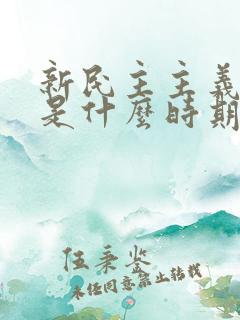 新民主主義
是什麼時期
伍秉鉴
未经同意禁止转载